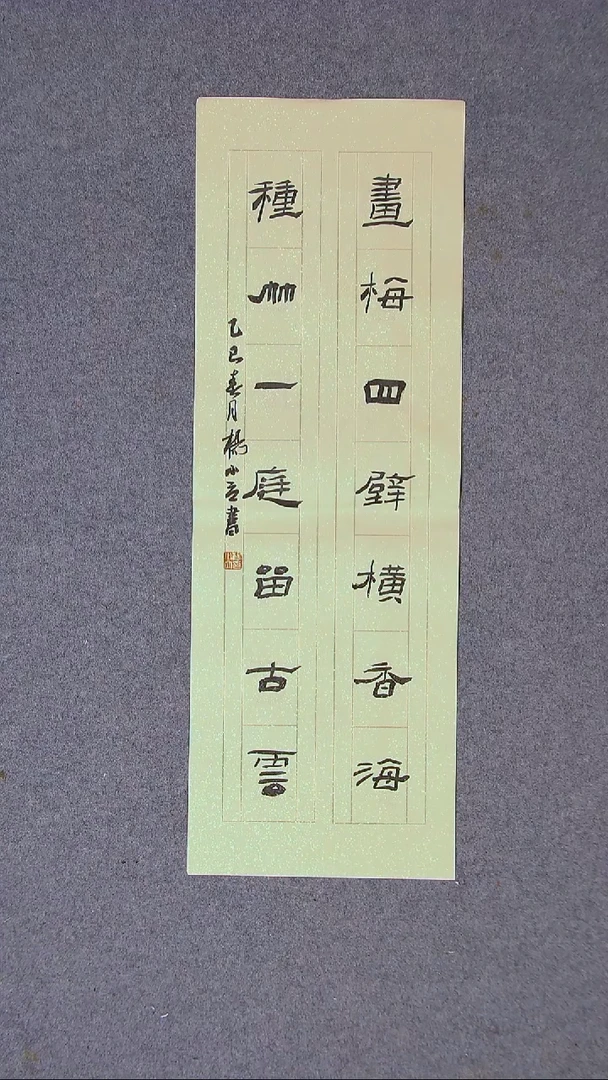 畫梅四壁橫香海
種竹一庭留古雲
乙巳春月楊小言書